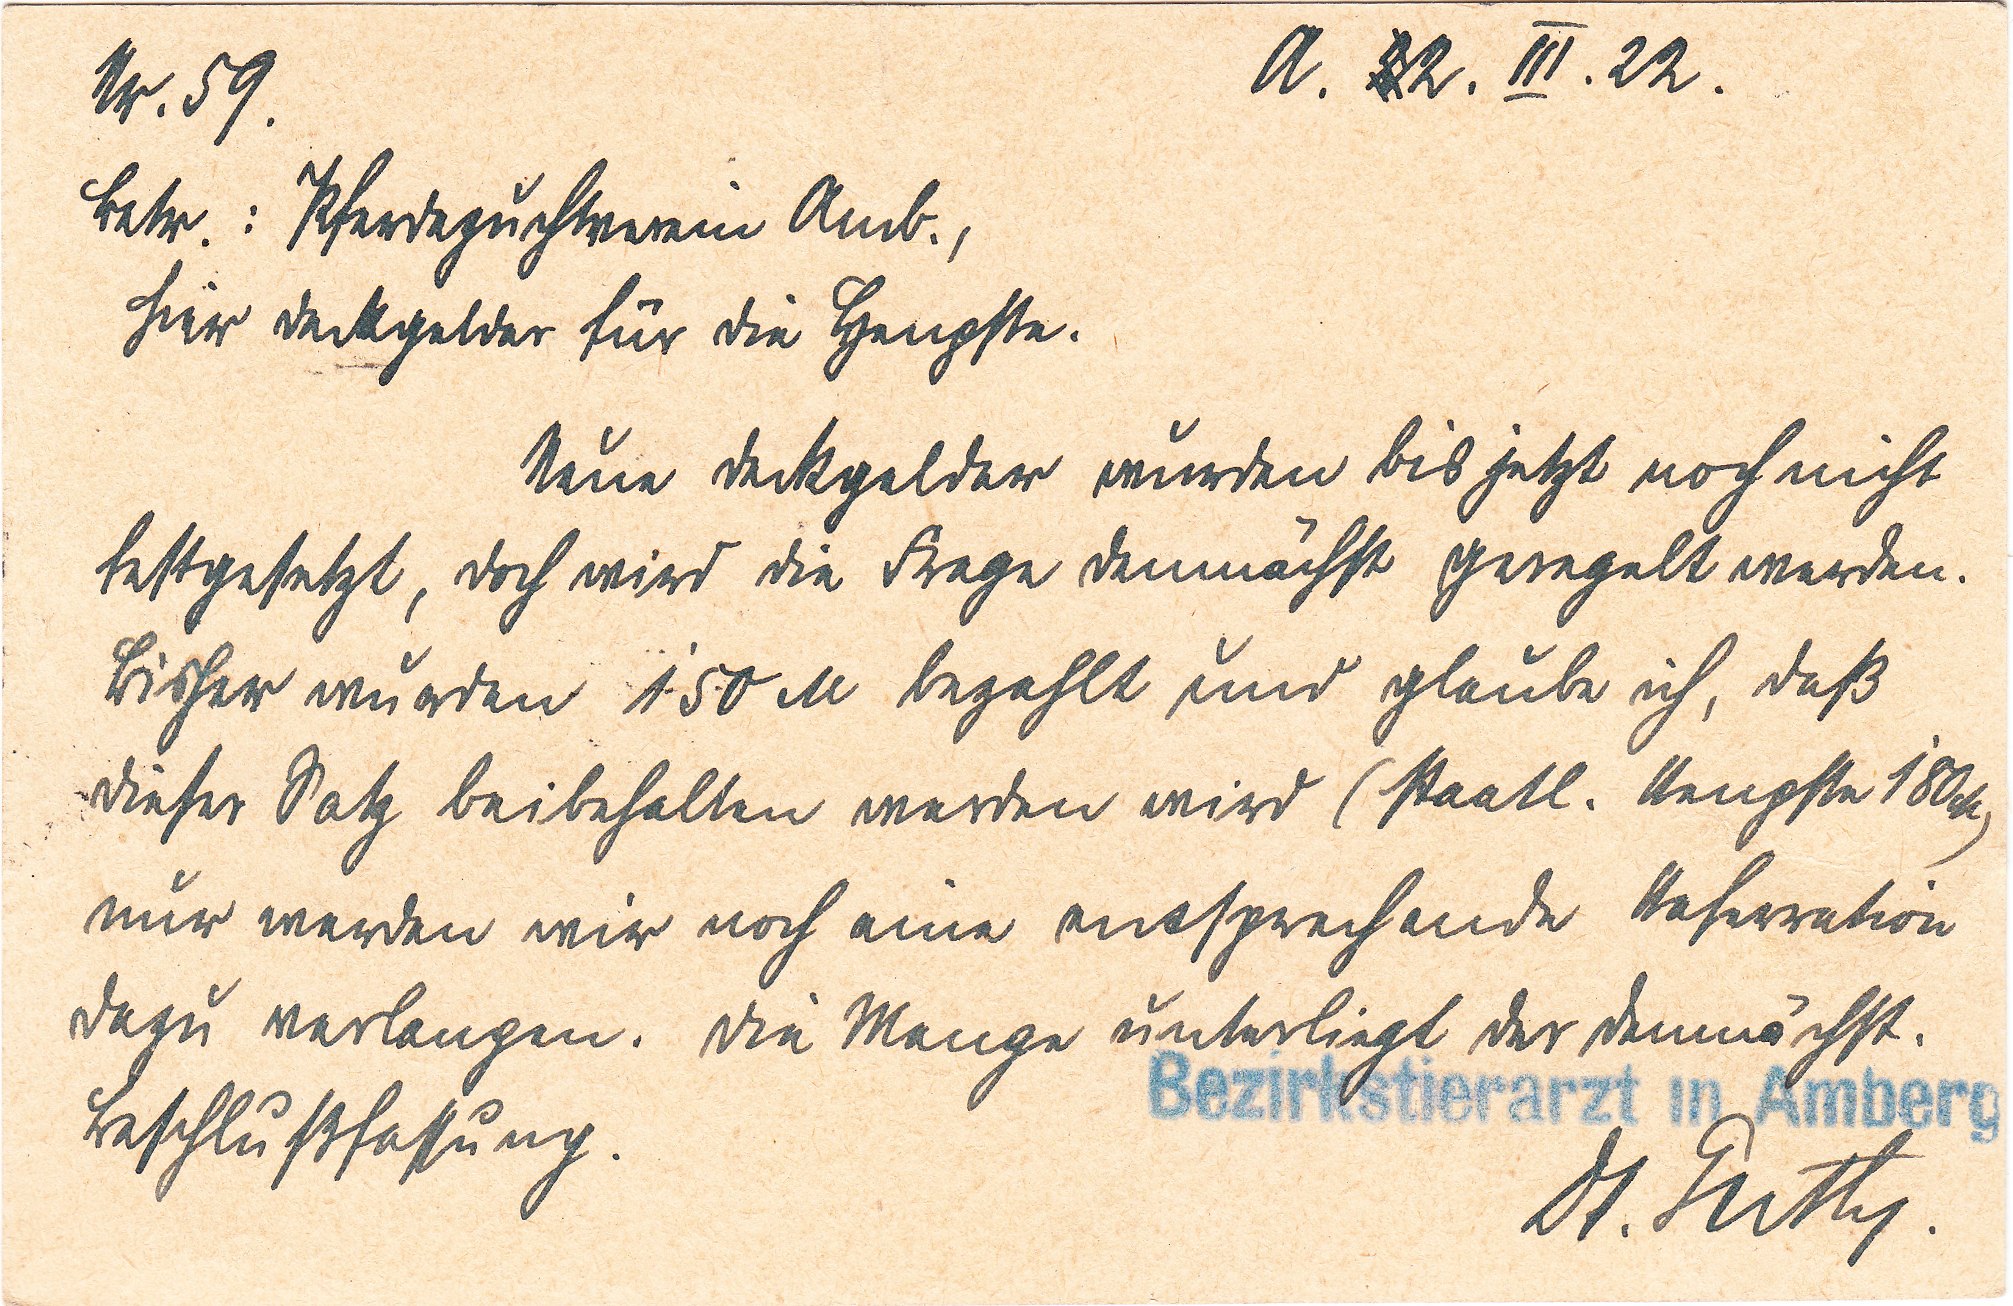 Nr. 59.
A. 22. III. 22.
Betr.: Pferdezuchtverein Amb.,
hier Deckgelder für die Hengste.
Neue Deckgelder wurden bis jetzt noch nicht
festgesetzt, doch wird die Frage demnächst geregelt werden.
Bisher wurden 150 M bezahlt und glaube ich, daß
dieser Satz beibehalten werden wird (staatl. Hengste 180 M)
nur werden wir noch eine entsprechende Haferration
dazu verlangen. Die Menge unterliegt der demnächst.
Beschlußfassung.
Bezirkstierarzt in Amberg
Dr.